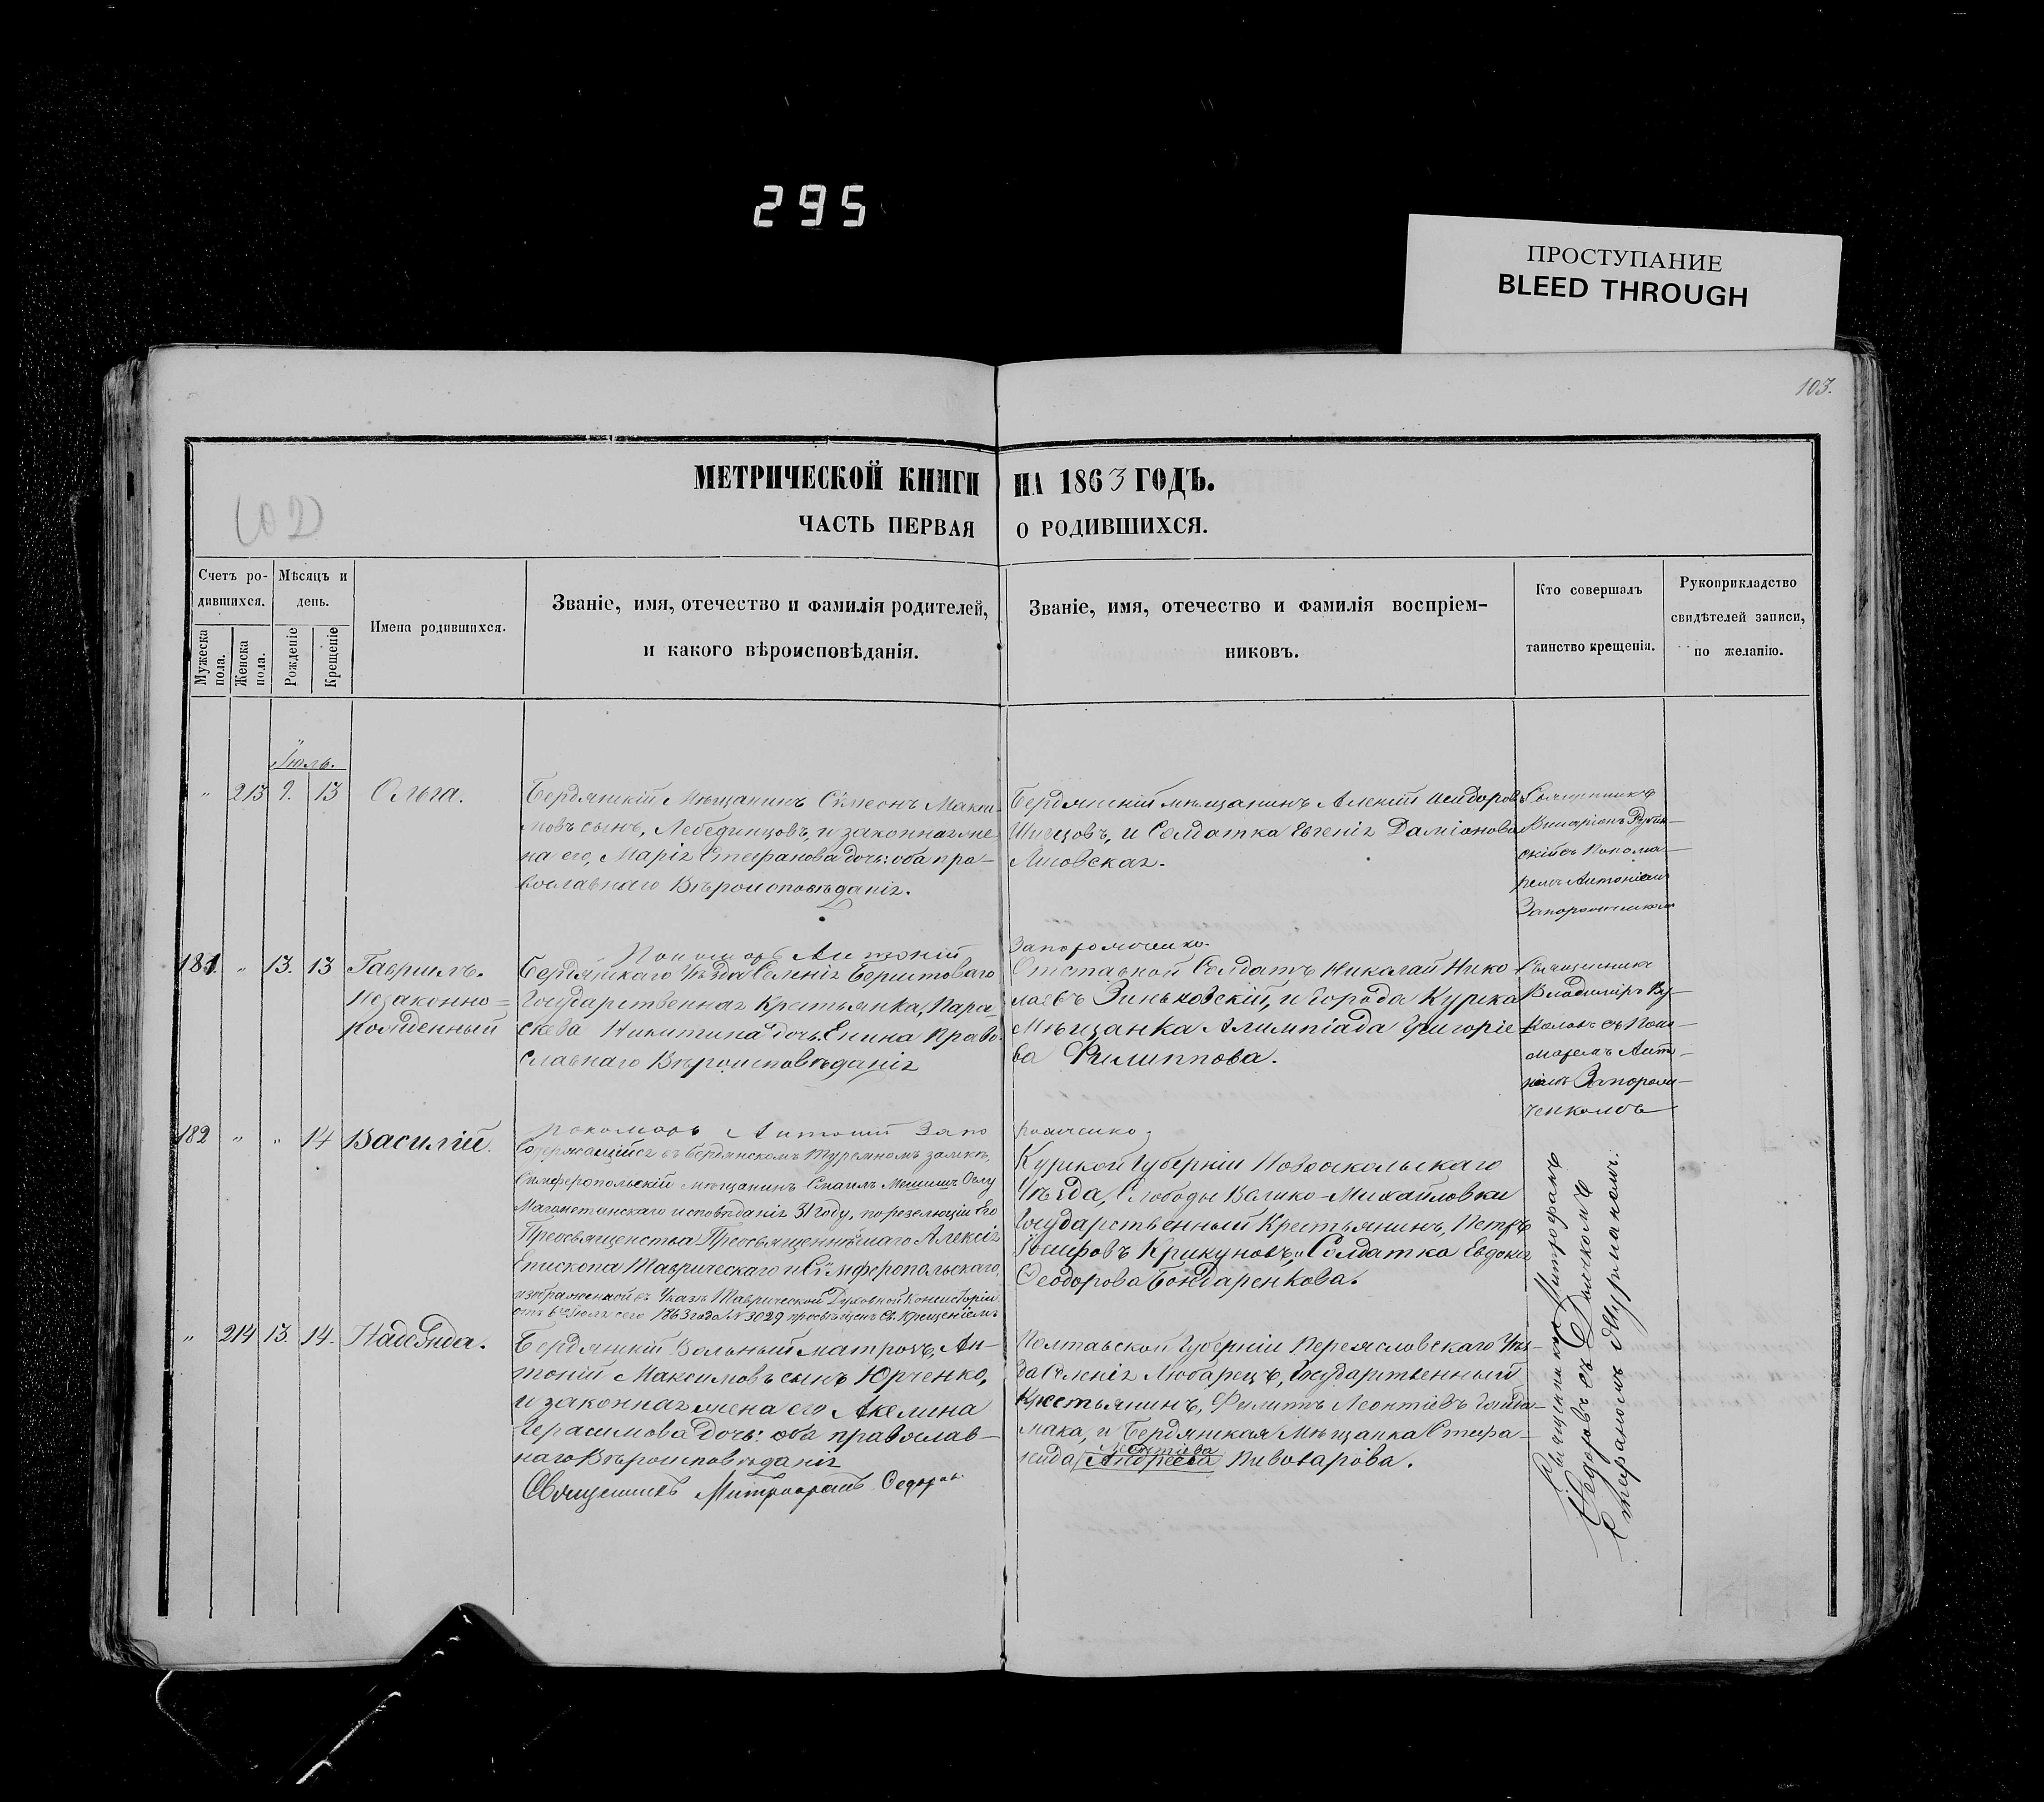 295
ПРОСТУПАНИЕ
BLEED THROUGH
103.
(02)
МЕТРИЧЕСКОЙ КНИГИ НА 1863 ГОДЪ.
ЧАСТЬ ПЕРВАЯ О РОДИВШИХСЯ.
Счетъ ро-
дившихся.
Мужеска пола.
Женска пола.
Мѣсяцъ и
день.
Рожденіе
Крещеніе
Имена родившихся.
Званіе, имя, отечество и фамилія родителей,
и какого вѣроисповѣданія.
Званіе, имя, отечество и фамилія воспріем-
никовъ.
Кто совершалъ
таинство крещенія.
Рукоприкладство
свидѣтелей записи,
по желанію.
Іюль.
" 213 9. 13 Ольга.
Бердянскій Мѣщанинъ Сѵмеонъ Макси-
мовъ сынъ, Лебединцовъ, и законная же-
на его, Марія Стефанова дочь: оба пра-
вославнаго Вѣроисповѣданія.
Бердянскій мѣщанинъ Алексій Исидоровъ
Швецовъ, и Солдатка Евгенія Даміанова
Священникъ
скій съ Понома-
ремъ Антоніемъ
Запорожченкомъ
Пономарь Антоній
Запорожченко.
181 " 13. 13 Гавриилъ.
Незаконно-
рожденный
Бердянскаго Уѣзда Селенія Берестоваго
Государственная Крестьянка, Пара-
скева Никитина дочь Енина Право-
славнаго Вѣроисповѣданія
Отставной Солдатъ Николай Нико-
лаевъ Зиньковскій, и города Курска
Мѣщанка Алимпіада Григоріе-
ва Филиппова.
Священникъ
Владиміръ Ву-
коловъ съ Поно-
маремъ Анто-
ніемъ Запорож-
ченкомъ
Пономарь Антоній Запо
рожченко.
182 " " 14 Василій.
Содержащійся въ Бердянскомъ Тюремномъ замкѣ,
Симферопольскій мѣщанинъ Смаилъ Оглу
Магометанскаго исповѣданія 31 году, по резолюціи Его
Преосвященства Преосвященнѣйшаго Алексія
Епископа Таврическаго и Сѵмферопольскаго,
изображенной въ Указѣ Таврической Духовной Консисторіи
отъ 6 Іюля сего 1863 года № 3029 просвѣщенъ Св. Крещеніемъ
Курской Губерніи Новооскольскаго
Уѣзда, Слободы Велико-Михайловки
Государственный Крестьянинъ, Петръ
Іосифовъ Крикуновъ, и Солдатка Евдокія
Ѳеодорова Бондаренкова.
" 214 13. 14. Надежда.
Бердянскій Вольный матросъ, Ан-
тоній Максимовъ сынъ Юрченко,
и законная жена его Акелина
Герасимова дочь: оба православ-
наго Вѣроисповѣданія
Священникъ Митрофанъ Федоровъ
Полтавской Губерніи Переясловскаго Уѣз-
да Селенія Любарецъ, Государственный
Крестьянинъ, Филиппъ Леонтіевъ Гайда-
мака, и Бердянская Мѣщанка Стефа-
нида
Леонтіева
Андреева Пивоварова.
Священникъ Митрофанъ
Федоровъ съ Дьячкомъ